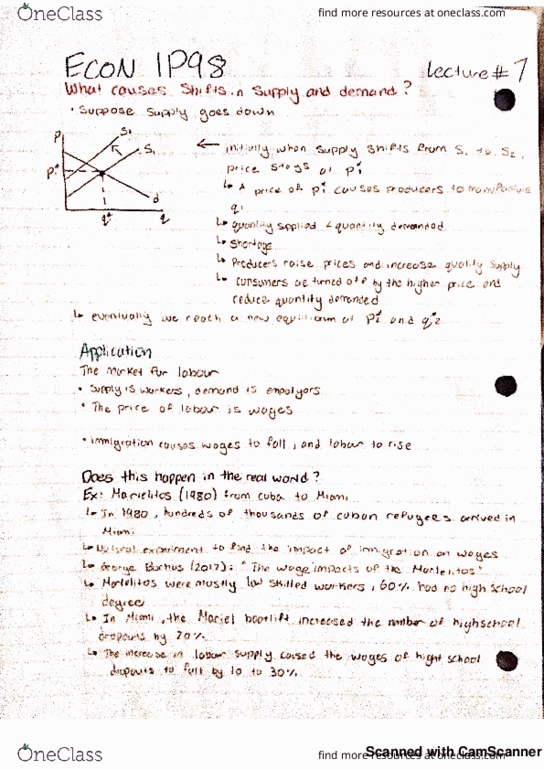 OneClass
find more resources at oneclass.com
ECON 1P98
Lecture # 7
What causes shifts in supply and demand?
• Suppose supply goes down
P
S2
S1
P*
d
q*
q
← initially when supply shifts from S1 to S2,
price stays at P1*
↳ A price of P1* causes producers to manufacture
q1
↳ quantity supplied < quantity demanded
↳ shortage
↳ Producers raise prices and increase quality supply
↳ consumers are turned off by the higher price and
reduce quantity demanded
↳ eventually we reach a new equilibrium at P2* and q*2
Application
The market for labour
• supply is workers, demand is empolyors
• The price of labour is wages
• immigration causes wages to fall, and labour to rise
Does this happen in the real world?
Ex: Marielitos (1980) from cuba to Miami
↳ In 1980, hundreds of thousands of cuban refugees arrived in
Miami
↳ Natural experiment to find the impact of immigration on wages
↳ George (2017): "The wage impacts of the Marielitos"
↳ Marielitos were mostly low skilled workers, 60% had no high school
degree
↳ In Miami, the Mariel boatlift increased the number of highschool
dropouts by 20%
↳ The increase in labour supply caused the wages of hight school
dropouts to fall by 10 to 30%
OneClass
find more resources at oneclass.com
Scanned with CamScanner